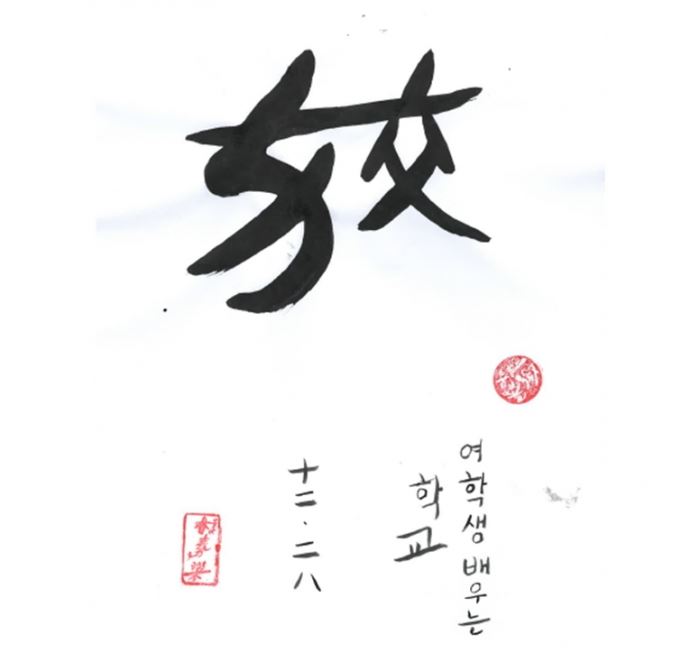 姣
여학생 배우는
학교
十二.二八